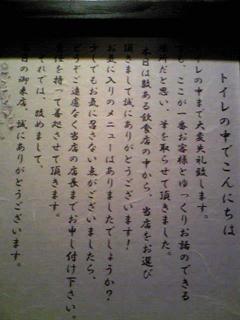 トイレの中でこんにちは
トイレの中まで大変失礼致します。
でも、ここが一番お客様とゆっくりお話のできる
場所だと思い、筆を取らせて頂きました。
本日は数ある飲食店の中から、当店をお選び
頂きまして誠にありがとうございます!
お気に入りのメニューはありましたでしょうか?
少しでもお気に召さない点がございましたら、
どうぞご遠慮なく当店の店長までお申し付け下さい。
責任を持って善処させて頂きます。
それでは、改めまして、
本日の御来店、誠にありがとうございます。